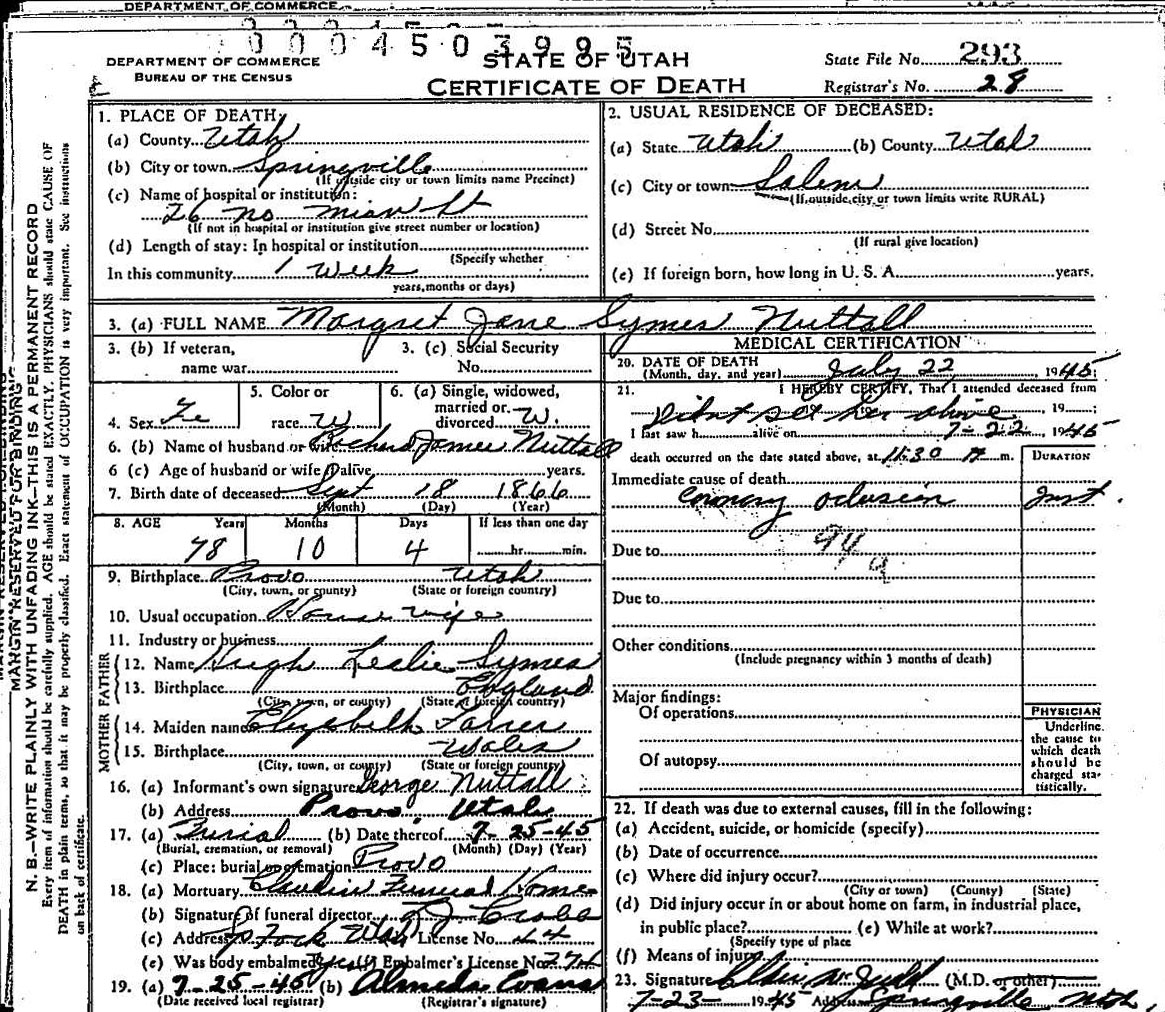 DEPARTMENT OF COMMERCE
0004503995
DEPARTMENT OF COMMERCE
BUREAU OF THE CENSUS
STATE OF UTAH
CERTIFICATE OF DEATH
State File No. 293
Registrar's No. 28
MARGIN RESERVED FOR BINDING
N. B.—WRITE PLAINLY WITH UNFADING INK—THIS IS A PERMANENT RECORD
Every item of information should be carefully supplied. AGE should be stated EXACTLY. PHYSICIANS should state CAUSE OF
DEATH in plain terms, so that it may be properly classified. Exact statement of OCCUPATION is very important. See instructions
on back of certificate.
1. PLACE OF DEATH:
(a) County Utah
(b) City or town Springville
(If outside city or town limits name Precinct)
(c) Name of hospital or institution:
26 no mian St
(If not in hospital or institution give street number or location)
(d) Length of stay: In hospital or institution
(Specify whether
In this community 1 Week
years, months or days)
2. USUAL RESIDENCE OF DECEASED:
(a) State Utah (b) County Utah
(c) City or town Salem
(If outside city or town limits write RURAL)
(d) Street No.
(If rural give location)
(e) If foreign born, how long in U. S. A. years.
3. (a) FULL NAME Margret Jane Symes Nuttall
3. (b) If veteran, name war
3. (c) Social Security No.
4. Sex Fe
5. Color or race W
6. (a) Single, widowed, married or divorced W.
6. (b) Name of husband or wife Richard James Nuttall
6 (c) Age of husband or wife if alive years.
7. Birth date of deceased Sept 18 1866
(Month) (Day) (Year)
8. AGE Years Months Days If less than one day
78 10 4 hr. min.
9. Birthplace Provo Utah
(City, town, or county) (State or foreign country)
10. Usual occupation House wife
11. Industry or business
FATHER
12. Name Hugh Leslie Symes
13. Birthplace England
(City, town, or county) (State or foreign country)
MOTHER
14. Maiden name Elizabeth
15. Birthplace Wales
(City, town, or county) (State or foreign country)
16. (a) Informant's own signature George Nuttall
(b) Address Provo Utah
17. (a) Burial (b) Date thereof 7-25-45
(Burial, cremation, or removal) (Month) (Day) (Year)
(c) Place: burial or cremation Provo
18. (a) Mortuary Claudin Funeral Home
(b) Signature of funeral director
(c) Address Utah License No.
(e) Was body embalmed yes (f) Embalmer's License No. 274
19. (a) 7-25-45 (b) Almeda Evans
(Date received local registrar) (Registrar's signature)
MEDICAL CERTIFICATION
20. DATE OF DEATH July 22 1945;
(Month, day, and year)
21. I HEREBY CERTIFY, That I attended deceased from
Didnt see her alive 19
I last saw h alive on 7-22, 1945
death occurred on the date stated above, at 11:30 m.
DURATION
Immediate cause of death
Coronary oclusion Inst.
94a
Due to
Due to
Other conditions
(Include pregnancy within 3 months of death)
Major findings:
Of operations
Of autopsy
PHYSICIAN
Underline
the cause to
which death
should be
charged sta-
tistically.
22. If death was due to external causes, fill in the following:
(a) Accident, suicide, or homicide (specify)
(b) Date of occurrence
(c) Where did injury occur?
(City or town) (County) (State)
(d) Did injury occur in or about home on farm, in industrial place,
in public place? (e) While at work?
(Specify type of place
(f) Means of injury
23. Signature (M.D. or other)
7-23-1945 Address Springville Utah